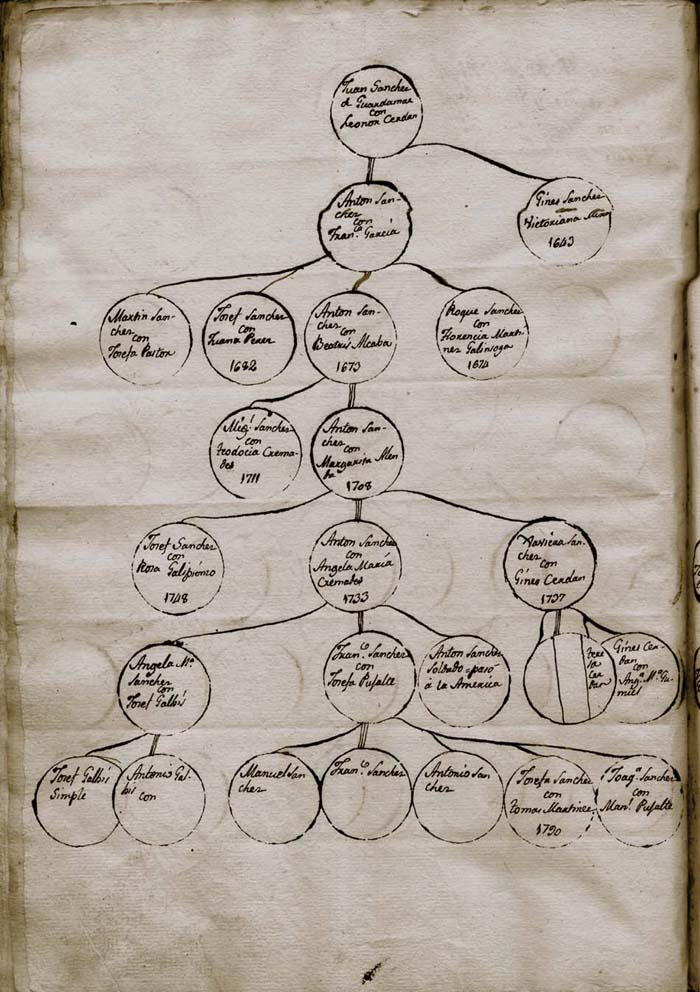 Juan Sanchez
de Guardamar
con
Leonor Cerdan
Gines Sanchez
Victoriana
1643
Anton San-
chez
con
Fran.ca Garcia
Martin San-
chez
con
Josefa Pastor
Josef Sanchez
con
Juana Perez
1682
Anton San-
chez
con
Beatris Alcaba
1673
Roque Sanchez
con
Florencia Marti-
nez Galinsoga
1674
Mig.l Sanchez
con
teodocia Crema-
des
1711
Anton San-
chez
con
Margarita
1708
Josef Sanchez
con
Rosa
1748
Anton Sanchez
con
Angela María
Cremades
1733
Xaviera San-
chez
con
Gines Cerdan
1737
Angela M.a
Sanchez
con
Josef Galbis
Fran.co Sanchez
con
Josefa Pujalte
Anton Sanchez
Soldado pasó
á la America
tere
sa
Cer
dan
Gines Cer-
dan
con
Ang.a M.a Gu-
miel
Josef Galbis
Simple
Antonio Gal-
bis
con
Manuel San-
chez
Fran.co Sanchez
Antonio San-
chez
Josefa Sanchez
con
tomas Martinez
1790
Joaq.a Sanchez
con
Man.l Pujalte